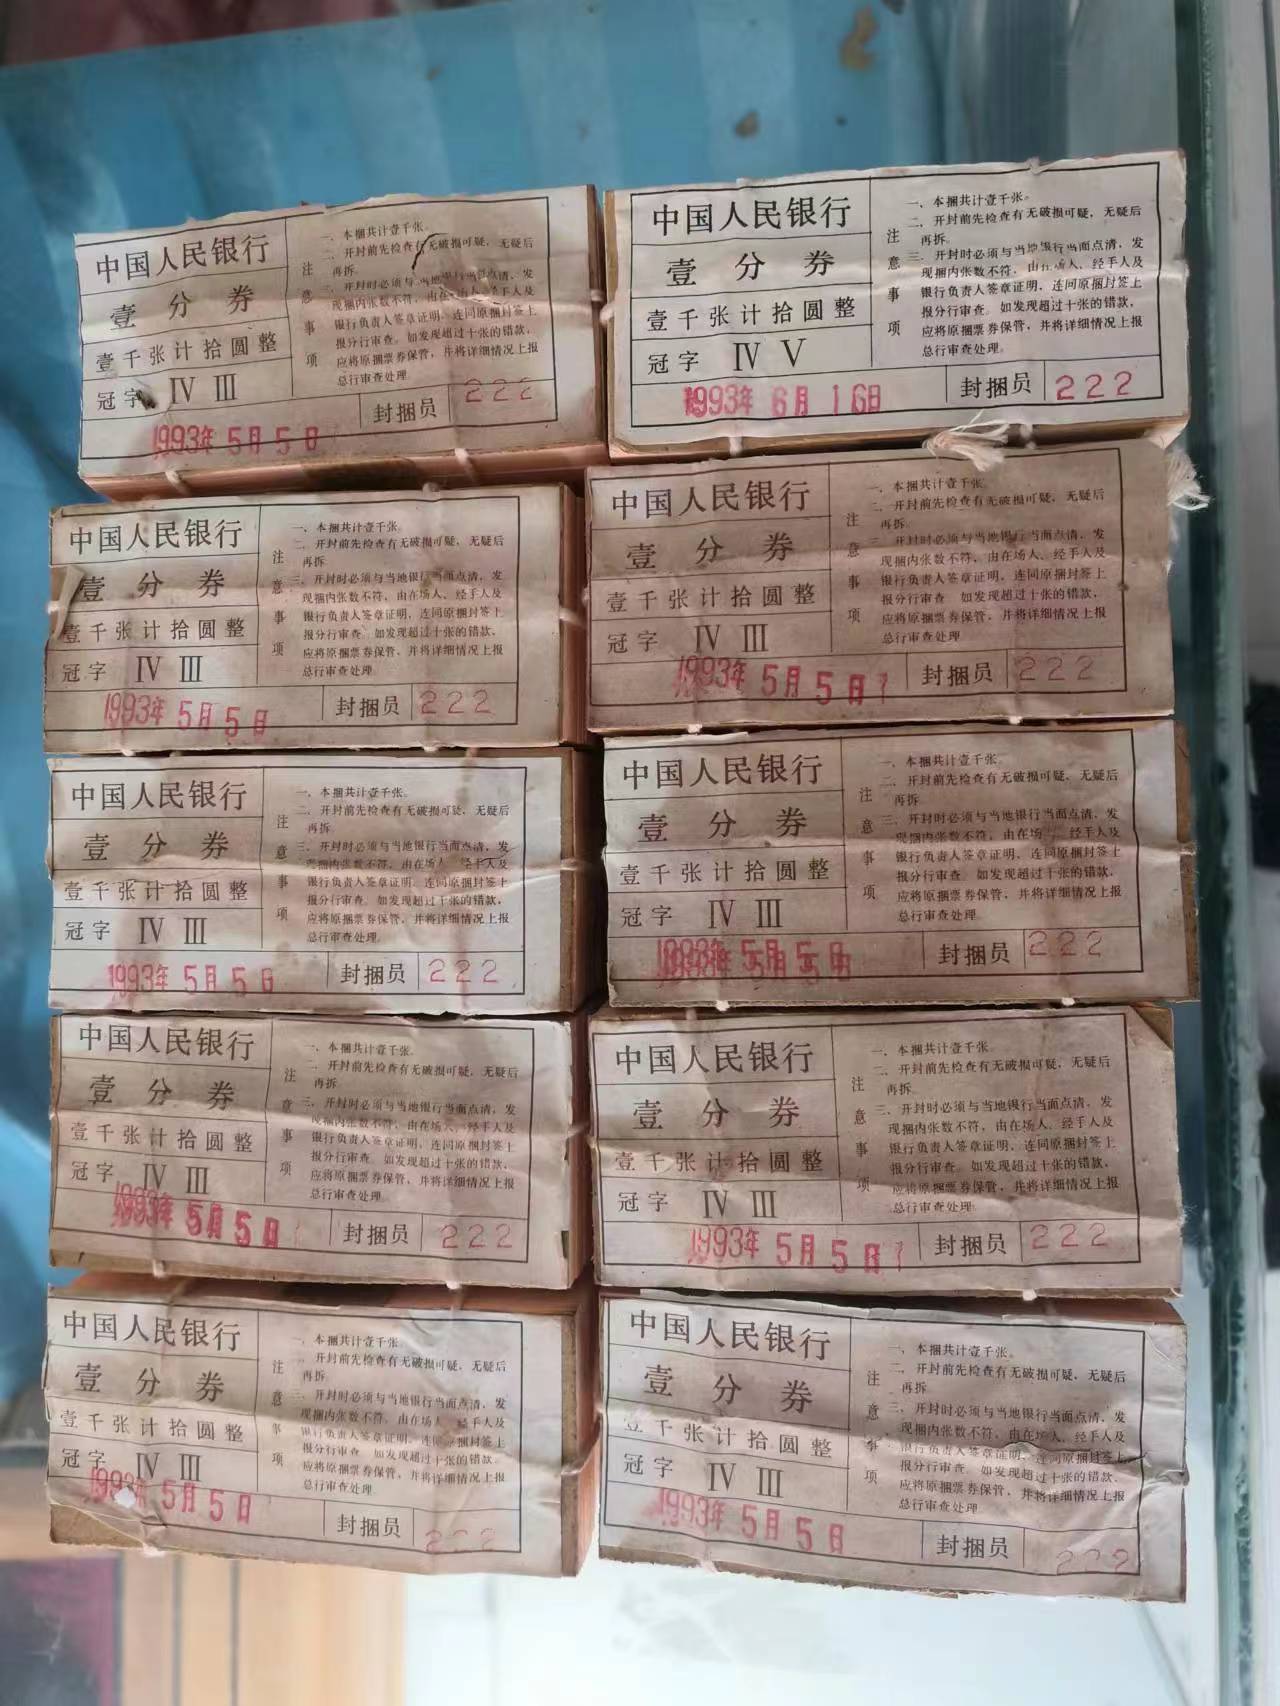 中国人民银行
壹分券
壹千张计拾圆整
冠字 Ⅳ Ⅲ
注意事项
一、本捆共计壹千张。
二、开封前先检查有无破损可疑，无疑后
再拆
三、开封时必须与当地银行当面点清，发
现捆内张数不符，由在场人、经手人及
银行负责人签章证明，连同原捆封签上
报分行审查。如发现超过十张的错款，
应将原捆票券保管，并将详细情况上报
总行审查处理。
1993年5月5日
封捆员 222
中国人民银行
壹分券
壹千张计拾圆整
冠字 Ⅳ Ⅴ
注意事项
一、本捆共计壹千张。
二、开封前先检查有无破损可疑，无疑后
再拆
三、开封时必须与当地银行当面点清，发
现捆内张数不符，由在场人、经手人及
银行负责人签章证明，连同原捆封签上
报分行审查。如发现超过十张的错款，
应将原捆票券保管，并将详细情况上报
总行审查处理。
1993年6月16日
封捆员 222
中国人民银行
壹分券
壹千张计拾圆整
冠字 Ⅳ Ⅲ
注意事项
一、本捆共计壹千张。
二、开封前先检查有无破损可疑，无疑后
再拆
三、开封时必须与当地银行当面点清，发
现捆内张数不符，由在场人、经手人及
银行负责人签章证明，连同原捆封签上
报分行审查。如发现超过十张的错款，
应将原捆票券保管，并将详细情况上报
总行审查处理。
1993年5月5日
封捆员 222
中国人民银行
壹分券
壹千张计拾圆整
冠字 Ⅳ Ⅲ
注意事项
一、本捆共计壹千张。
二、开封前先检查有无破损可疑，无疑后
再拆
三、开封时必须与当地银行当面点清，发
现捆内张数不符，由在场人、经手人及
银行负责人签章证明，连同原捆封签上
报分行审查。如发现超过十张的错款，
应将原捆票券保管，并将详细情况上报
总行审查处理。
1993年5月5日
封捆员 222
中国人民银行
壹分券
壹千张计拾圆整
冠字 Ⅳ Ⅲ
注意事项
一、本捆共计壹千张。
二、开封前先检查有无破损可疑，无疑后
再拆
三、开封时必须与当地银行当面点清，发
现捆内张数不符，由在场人、经手人及
银行负责人签章证明，连同原捆封签上
报分行审查。如发现超过十张的错款，
应将原捆票券保管，并将详细情况上报
总行审查处理。
1993年5月5日
封捆员 222
中国人民银行
壹分券
壹千张计拾圆整
冠字 Ⅳ Ⅲ
注意事项
一、本捆共计壹千张。
二、开封前先检查有无破损可疑，无疑后
再拆
三、开封时必须与当地银行当面点清，发
现捆内张数不符，由在场人、经手人及
银行负责人签章证明，连同原捆封签上
报分行审查。如发现超过十张的错款，
应将原捆票券保管，并将详细情况上报
总行审查处理。
1993年5月5日
封捆员 222
中国人民银行
壹分券
壹千张计拾圆整
冠字 Ⅳ Ⅲ
注意事项
一、本捆共计壹千张。
二、开封前先检查有无破损可疑，无疑后
再拆
三、开封时必须与当地银行当面点清，发
现捆内张数不符，由在场人、经手人及
银行负责人签章证明，连同原捆封签上
报分行审查。如发现超过十张的错款，
应将原捆票券保管，并将详细情况上报
总行审查处理。
1993年5月5日
封捆员 222
中国人民银行
壹分券
壹千张计拾圆整
冠字 Ⅳ Ⅲ
注意事项
一、本捆共计壹千张。
二、开封前先检查有无破损可疑，无疑后
再拆
三、开封时必须与当地银行当面点清，发
现捆内张数不符，由在场人、经手人及
银行负责人签章证明，连同原捆封签上
报分行审查。如发现超过十张的错款，
应将原捆票券保管，并将详细情况上报
总行审查处理。
1993年5月5日
封捆员 222
中国人民银行
壹分券
壹千张计拾圆整
冠字 Ⅳ Ⅲ
注意事项
一、本捆共计壹千张。
二、开封前先检查有无破损可疑，无疑后
再拆
三、开封时必须与当地银行当面点清，发
现捆内张数不符，由在场人、经手人及
银行负责人签章证明，连同原捆封签上
报分行审查。如发现超过十张的错款，
应将原捆票券保管，并将详细情况上报
总行审查处理。
1993年5月5日
封捆员 222
中国人民银行
壹分券
壹千张计拾圆整
冠字 Ⅳ Ⅲ
注意事项
一、本捆共计壹千张。
二、开封前先检查有无破损可疑，无疑后
再拆
三、开封时必须与当地银行当面点清，发
现捆内张数不符，由在场人、经手人及
银行负责人签章证明，连同原捆封签上
报分行审查。如发现超过十张的错款，
应将原捆票券保管，并将详细情况上报
总行审查处理。
1993年5月5日
封捆员 222